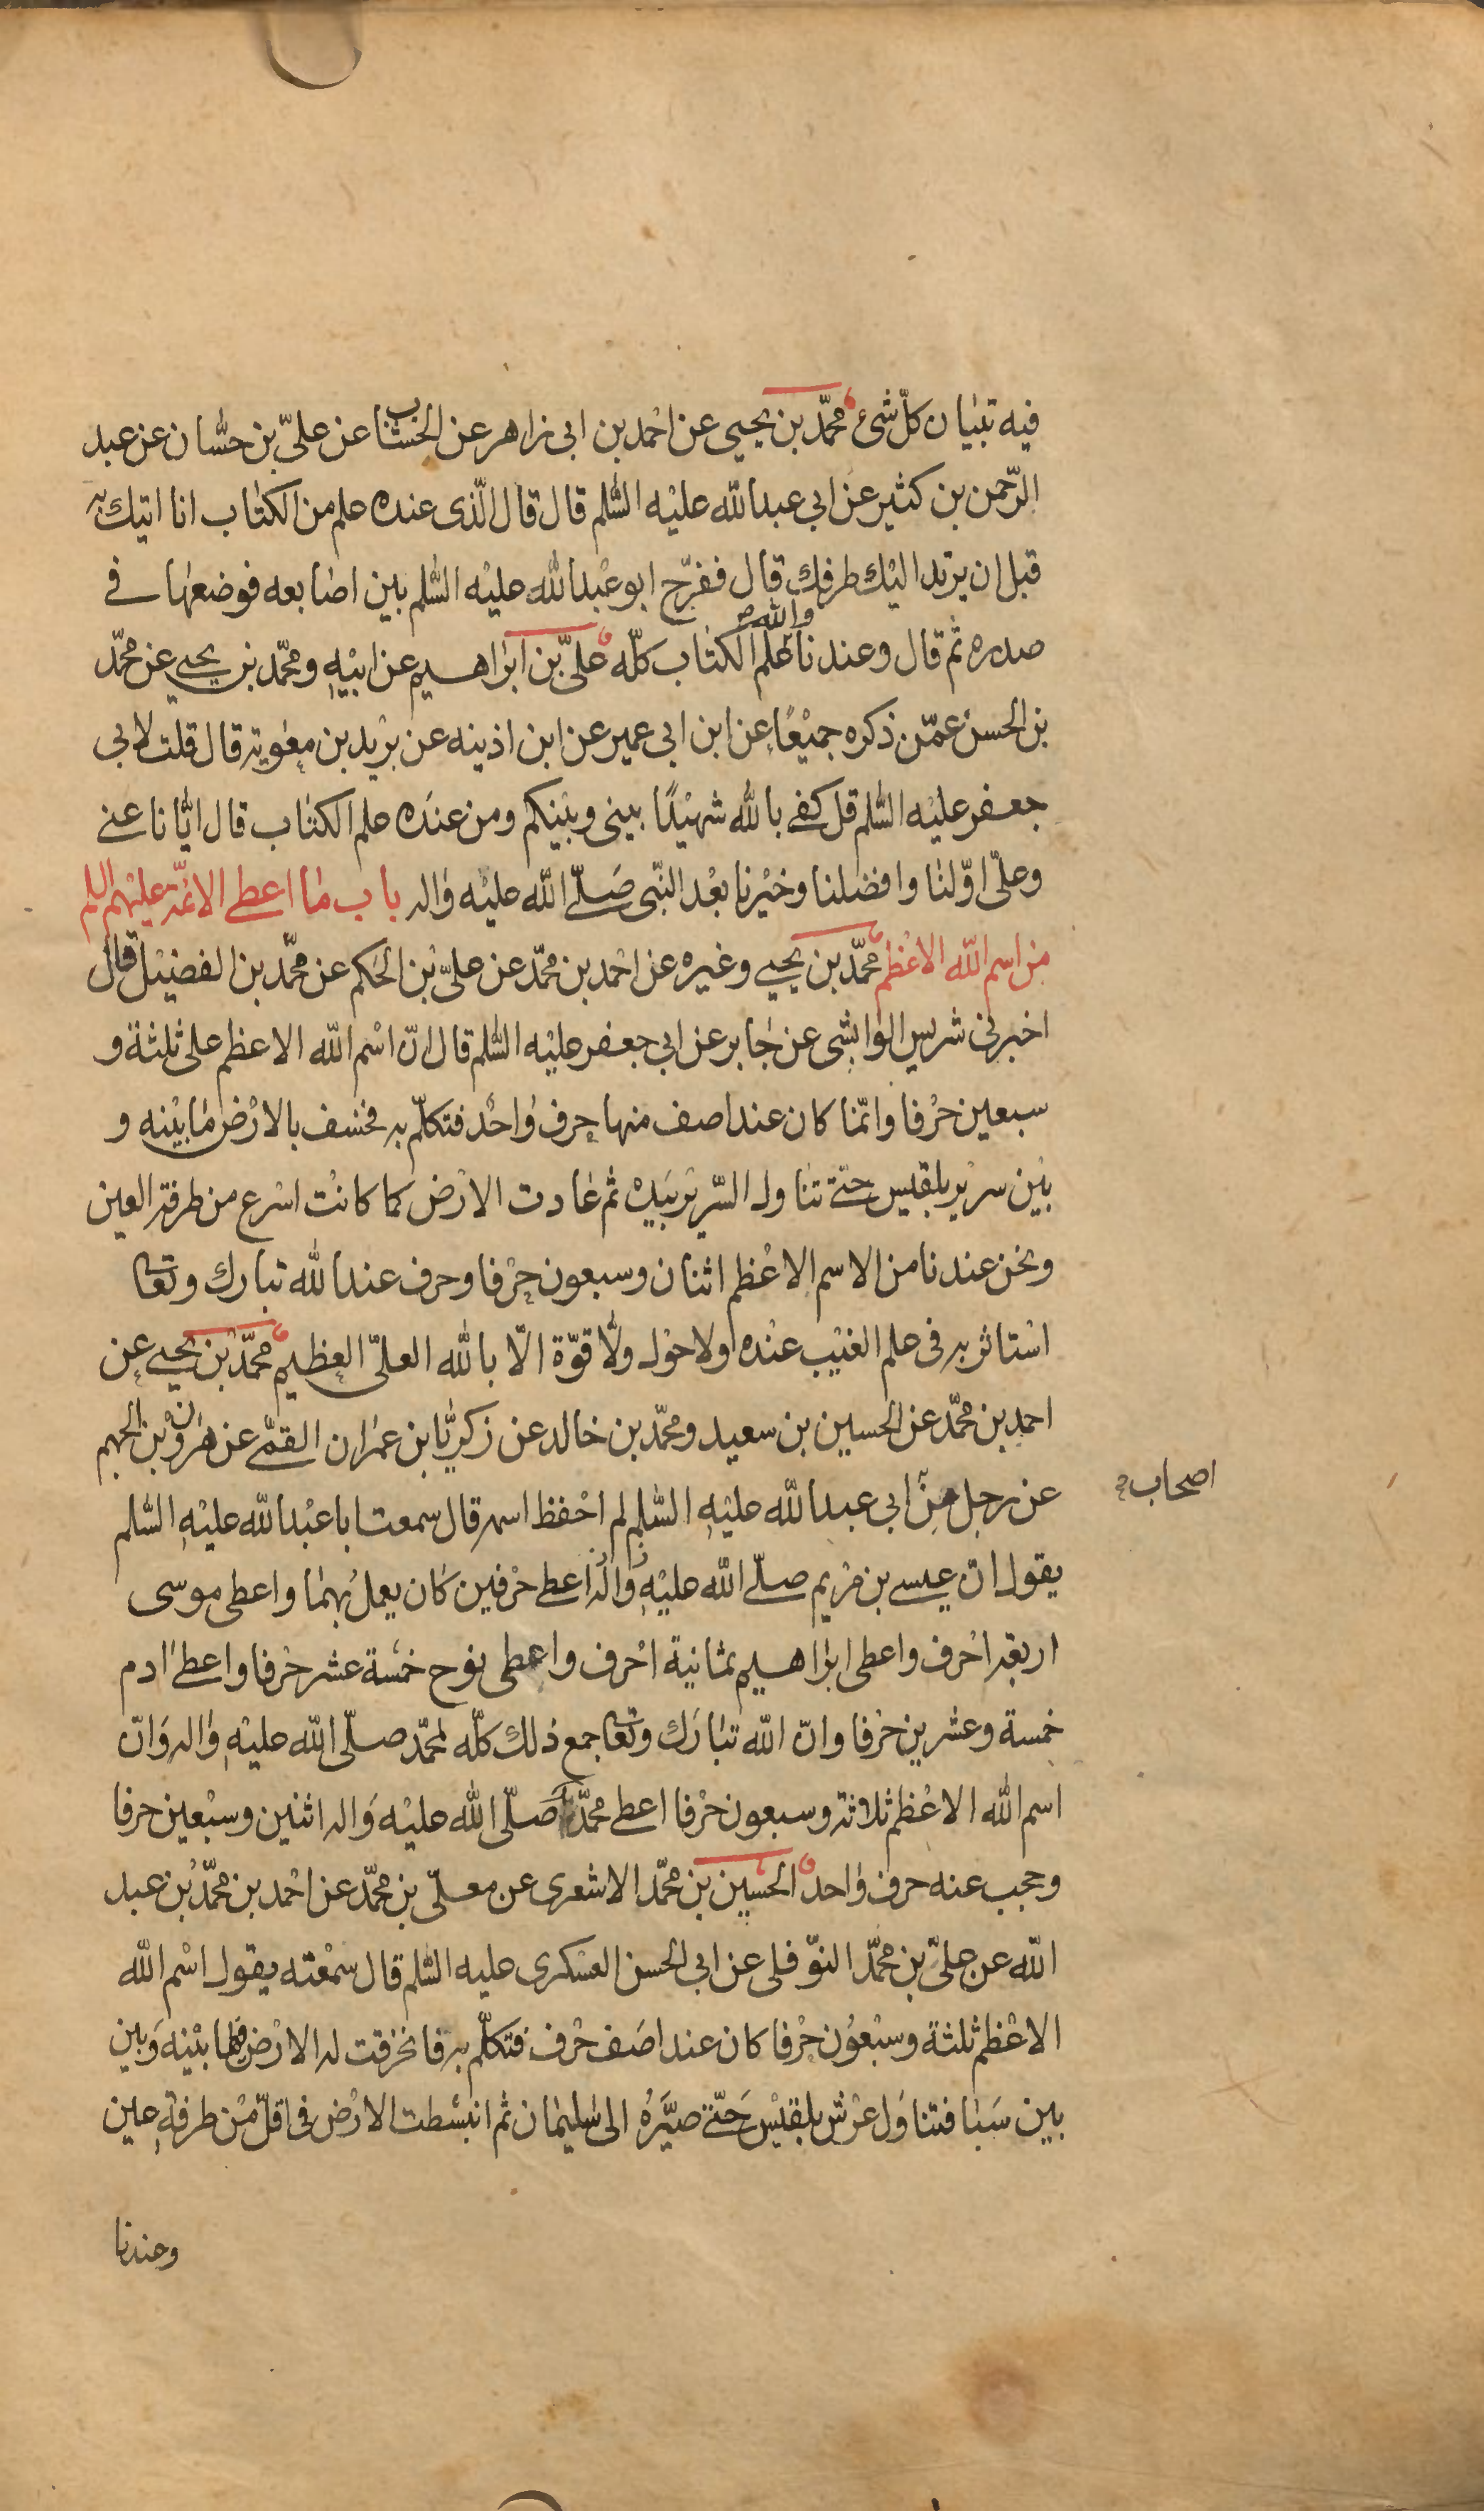 فيه تبيان كلّ شئ محمّد بن يحيى عن احمد بن ابى زاهر عن الخشاب عن علىّ بن حسّان عن عبد
الرّحمن بن كثير عن ابى عبد الله عليه السّلم قال قال الّذى عنده علم من الكتاب انا اتيك به
قبل ان يرتد اليك طرفك قال ففرّج ابو عبد الله عليه السّلم بين اصابعه فوضعها فى
صدره ثم قال وعندنا والله علم الكتاب كلّه علىّ بن ابراهيم عن ابيه ومحمّد بن يحيى عن محمّد
بن الحسن عمّن ذكره جميعا عن ابن ابى عمير عن ابن اذينه عن بريد بن معوية قال قلت لابى
جعفر عليه السّلم قل كفى بالله شهيدا بينى وبينكم ومن عنده علم الكتاب قال ايّانا عنى
وعلىّ اوّلنا وافضلنا وخيرنا بعد النّبى صلّى الله عليه واله باب ما اعطى الائمّة عليهم السلم
من اسم الله الاعظم محمّد بن يحيى وغيره عن احمد بن محمّد عن علىّ بن الحكم عن محمّد بن الفضيل قال
اخبرنى شريس الوابشى عن جابر عن ابى جعفر عليه السّلم قال انّ اسم الله الاعظم على ثلثة و
سبعين حرفا وانّما كان عند اصف منها حرف واحد فتكلّم به فخسف بالارض ما بينه و
بين سرير بلقيس حتّى تناول السّرير بيده ثم عادت الارض كما كانت اسرع من طرفة العين
ونحن عندنا من الاسم الاعظم اثنان وسبعون حرفا وحرف عند الله تبارك وتعا
استاثر به فى علم الغيب عنده ولا حول ولا قوّة الّا بالله العلىّ العظيم محمّد بن يحيى عن
احمد بن محمّد عن الحسين بن سعيد ومحمّد بن خالد عن زكريّا بن عمران القمّى عن هرون بن الجهم
عن رجل من ابى عبد الله عليه السّلم لم احفظ اسمه قال سمعت ابا عبد الله عليه السّلم
اصحاب
يقول انّ عيسى بن مريم صلّى الله عليه واله اعطى حرفين كان يعمل بهما واعطى موسى
اربعة احرف واعطى ابراهيم ثمانية احرف واعطى نوح خمسة عشر حرفا واعطى ادم
خمسة وعشرين حرفا وانّ الله تبارك وتعا جمع ذلك كلّه لمحمّد صلّى الله عليه واله وانّ
اسم الله الاعظم ثلاثة وسبعون حرفا اعطى محمّدا صلّى الله عليه واله اثنين وسبعين حرفا
وحجب عنه حرف واحد الحسين بن محمّد الاشعرى عن معلّى بن محمّد عن احمد بن محمّد بن عبد
الله عن علىّ بن محمّد النّوفلى عن ابى الحسن العسكرى عليه السّلم قال سمعته يقول اسم الله
الاعظم ثلثة وسبعون حرفا كان عند اصف حرف فتكلّم به فانخرقت له الارض فيما بينه وبين
بين سبا فتناول عرش بلقيس حتّى صيّره الى سليمان ثم انبسطت الارض فى اقلّ من طرفة عين
وعندنا